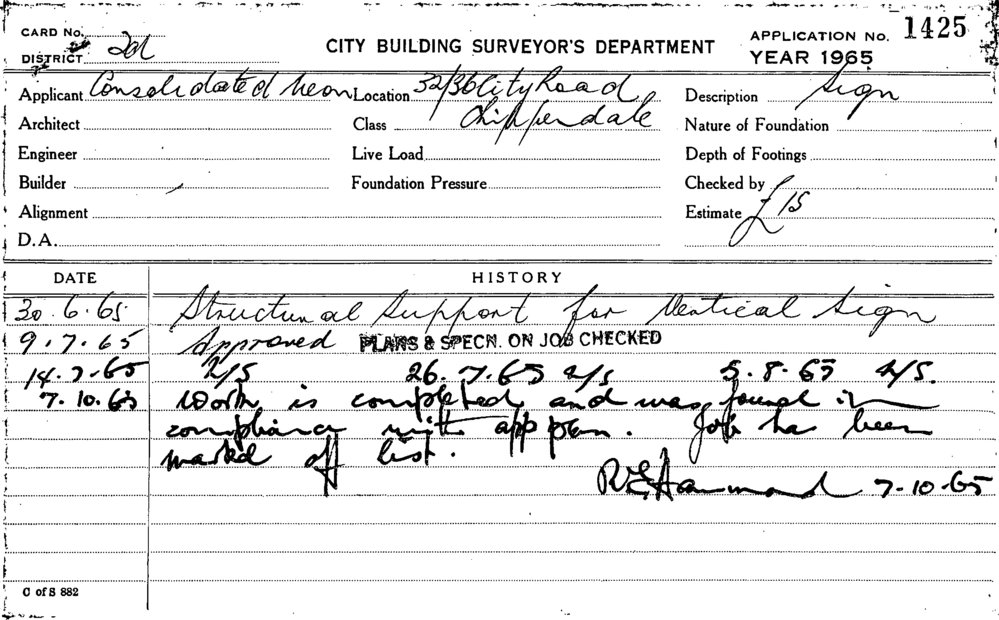 CARD No.
DISTRICT 2nd
CITY BUILDING SURVEYOR'S DEPARTMENT
APPLICATION No. 1425
YEAR 1965
Applicant Consolidated Neon Location 32/36 City Road Description Sign
Architect Class Chippendale Nature of Foundation
Engineer Live Load Depth of Footings
Builder Foundation Pressure Checked by
Alignment Estimate £15
D.A.
DATE HISTORY
30.6.65 Structural Support for Vertical Sign
9.7.65 Approved PLANS & SPECN. ON JOB CHECKED
14.7.65 N/S 26.7.65 N/S 5.8.65 N/S.
7.10.65 Work is completed and was found in
compliance with app plan. Job has been
marked off list.
R E Hammond 7-10-65
C of S 882